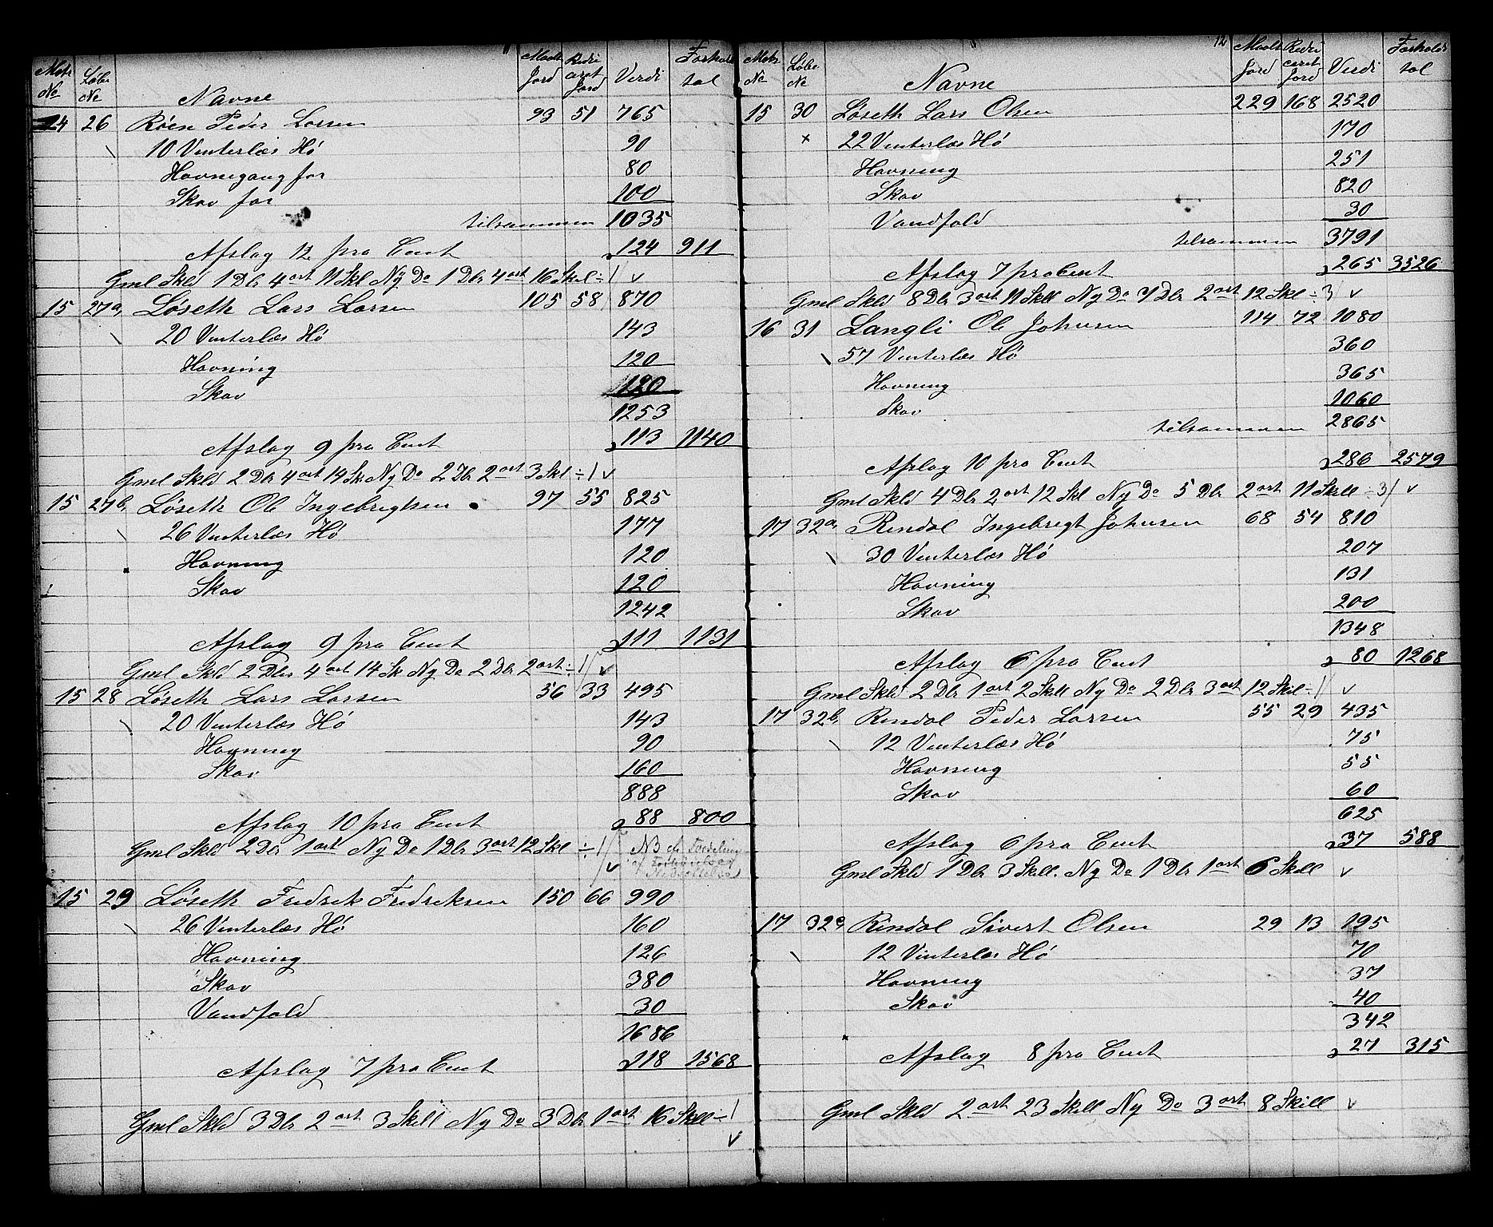 Matr No Løbe No Navne Maale Jord Redu ceret Jord Verdi Forholds tal
24 26 Røen Peder Larsen 93 51 765
10 Vinterlæs Hö 90
Havnegang for 80
Skov for 100
tilsammen 1035
Afslag 12 pro Cent 124 911
Gml Skld 1 Dlr 4 ort 11 Skl Ny Do 1 Dlr 4 ort 16 Skl ÷ 1 v
15 27a Løseth Lars Larsen 105 58 870
20 Vinterlæs Hö 143
Havning 120
Skov 120
1253
Afslag 9 pro Cent 113 1140
Gml Skld 2 Dlr 4 ort 14 Sk Ny Do 2 Dlr 2 ort 3 Skl ÷ 1 v
15 27b Løseth Ole Ingebrigtsen 97 55 825
26 Vinterlæs Hö 177
Havning 120
Skov 120
1242
Afslag 9 pro Cent 111 1131
Gml Skld 2 Dlr 4 ort 14 Sk Ny Do 2 Dlr 2 ort ÷ 1/ v
15 28 Løseth Lars Larsen 56 33 495
20 Vinterlæs Hö 143
Havning 90
Skov 160
888
Afslag 10 pro Cent 88 800
Gml Skld 2 Dlr 1 ort Ny Do 1 Dlr 3 ort 12 Skl ÷ 1/ v NB
15 29 Løseth Fredrek Fredreksen 150 66 990
26 Vinterlæs Hö 160
Havning 126
Skov 380
Vandfald 30
1686
Afslag 7 pro Cent 118 1568
Gml Skld 3 Dlr 2 ort 3 Skill Ny Do 3 Dlr 1 ort 16 Skll ÷ 1 v
12
Matr No Løbe No Navne Maale Jord Redu ceret Jord Verdi Forholds tal
15 30 Løseth Lars Olsen 229 168 2520
x 22 Vinterlæs Hö 170
Havning 251
Skov 820
Vandfald 30
tilsammen 3791
Afslag 7 pro Cent 265 3526
Gml Skld 8 Dlr 3 ort 11 Skll Ny Do 7 Dlr 2 ort 12 Skl ÷ 3 v
16 31 Langli Ole Johnsen 114 72 1080
57 Vinterlæs Hö 360
Havning 365
Skov 1060
tilsammen 2865
Afslag 10 pro Cent 286 2579
Gml Skld 4 Dlr 2 ort 12 Skl Ny Do 5 Dlr 2 ort 11 Skill ÷ 3/ v
17 32a Rindal Ingebrigt Johnsen 68 54 810
30 Vinterlæs Hö 207
Havning 131
Skov 200
1348
Afslag 6 pro Cent 80 1268
Gml Skld 2 Dlr 1 ort 2 Skll Ny Do 2 Dlr 3 ort 12 Skl ÷ 1/ v
17 32b Rindal Peder Larsen 55 29 435
12 Vinterlæs Hö 75
Havning 55
Skov 60
625
Afslag 6 pro Cent 37 588
Gml Skld 1 Dlr 3 Skll. Ny Do 1 Dlr 1 ort 6 Skll v
17 32c Rindal Sivert Olsen 29 13 195
12 Vinterlæs Hö 70
Havning 37
Skov 40
342
Afslag 8 pro Cent 27 315
Gml Skld 2 ort 23 Skll Ny Do 3 ort 8 Skill v